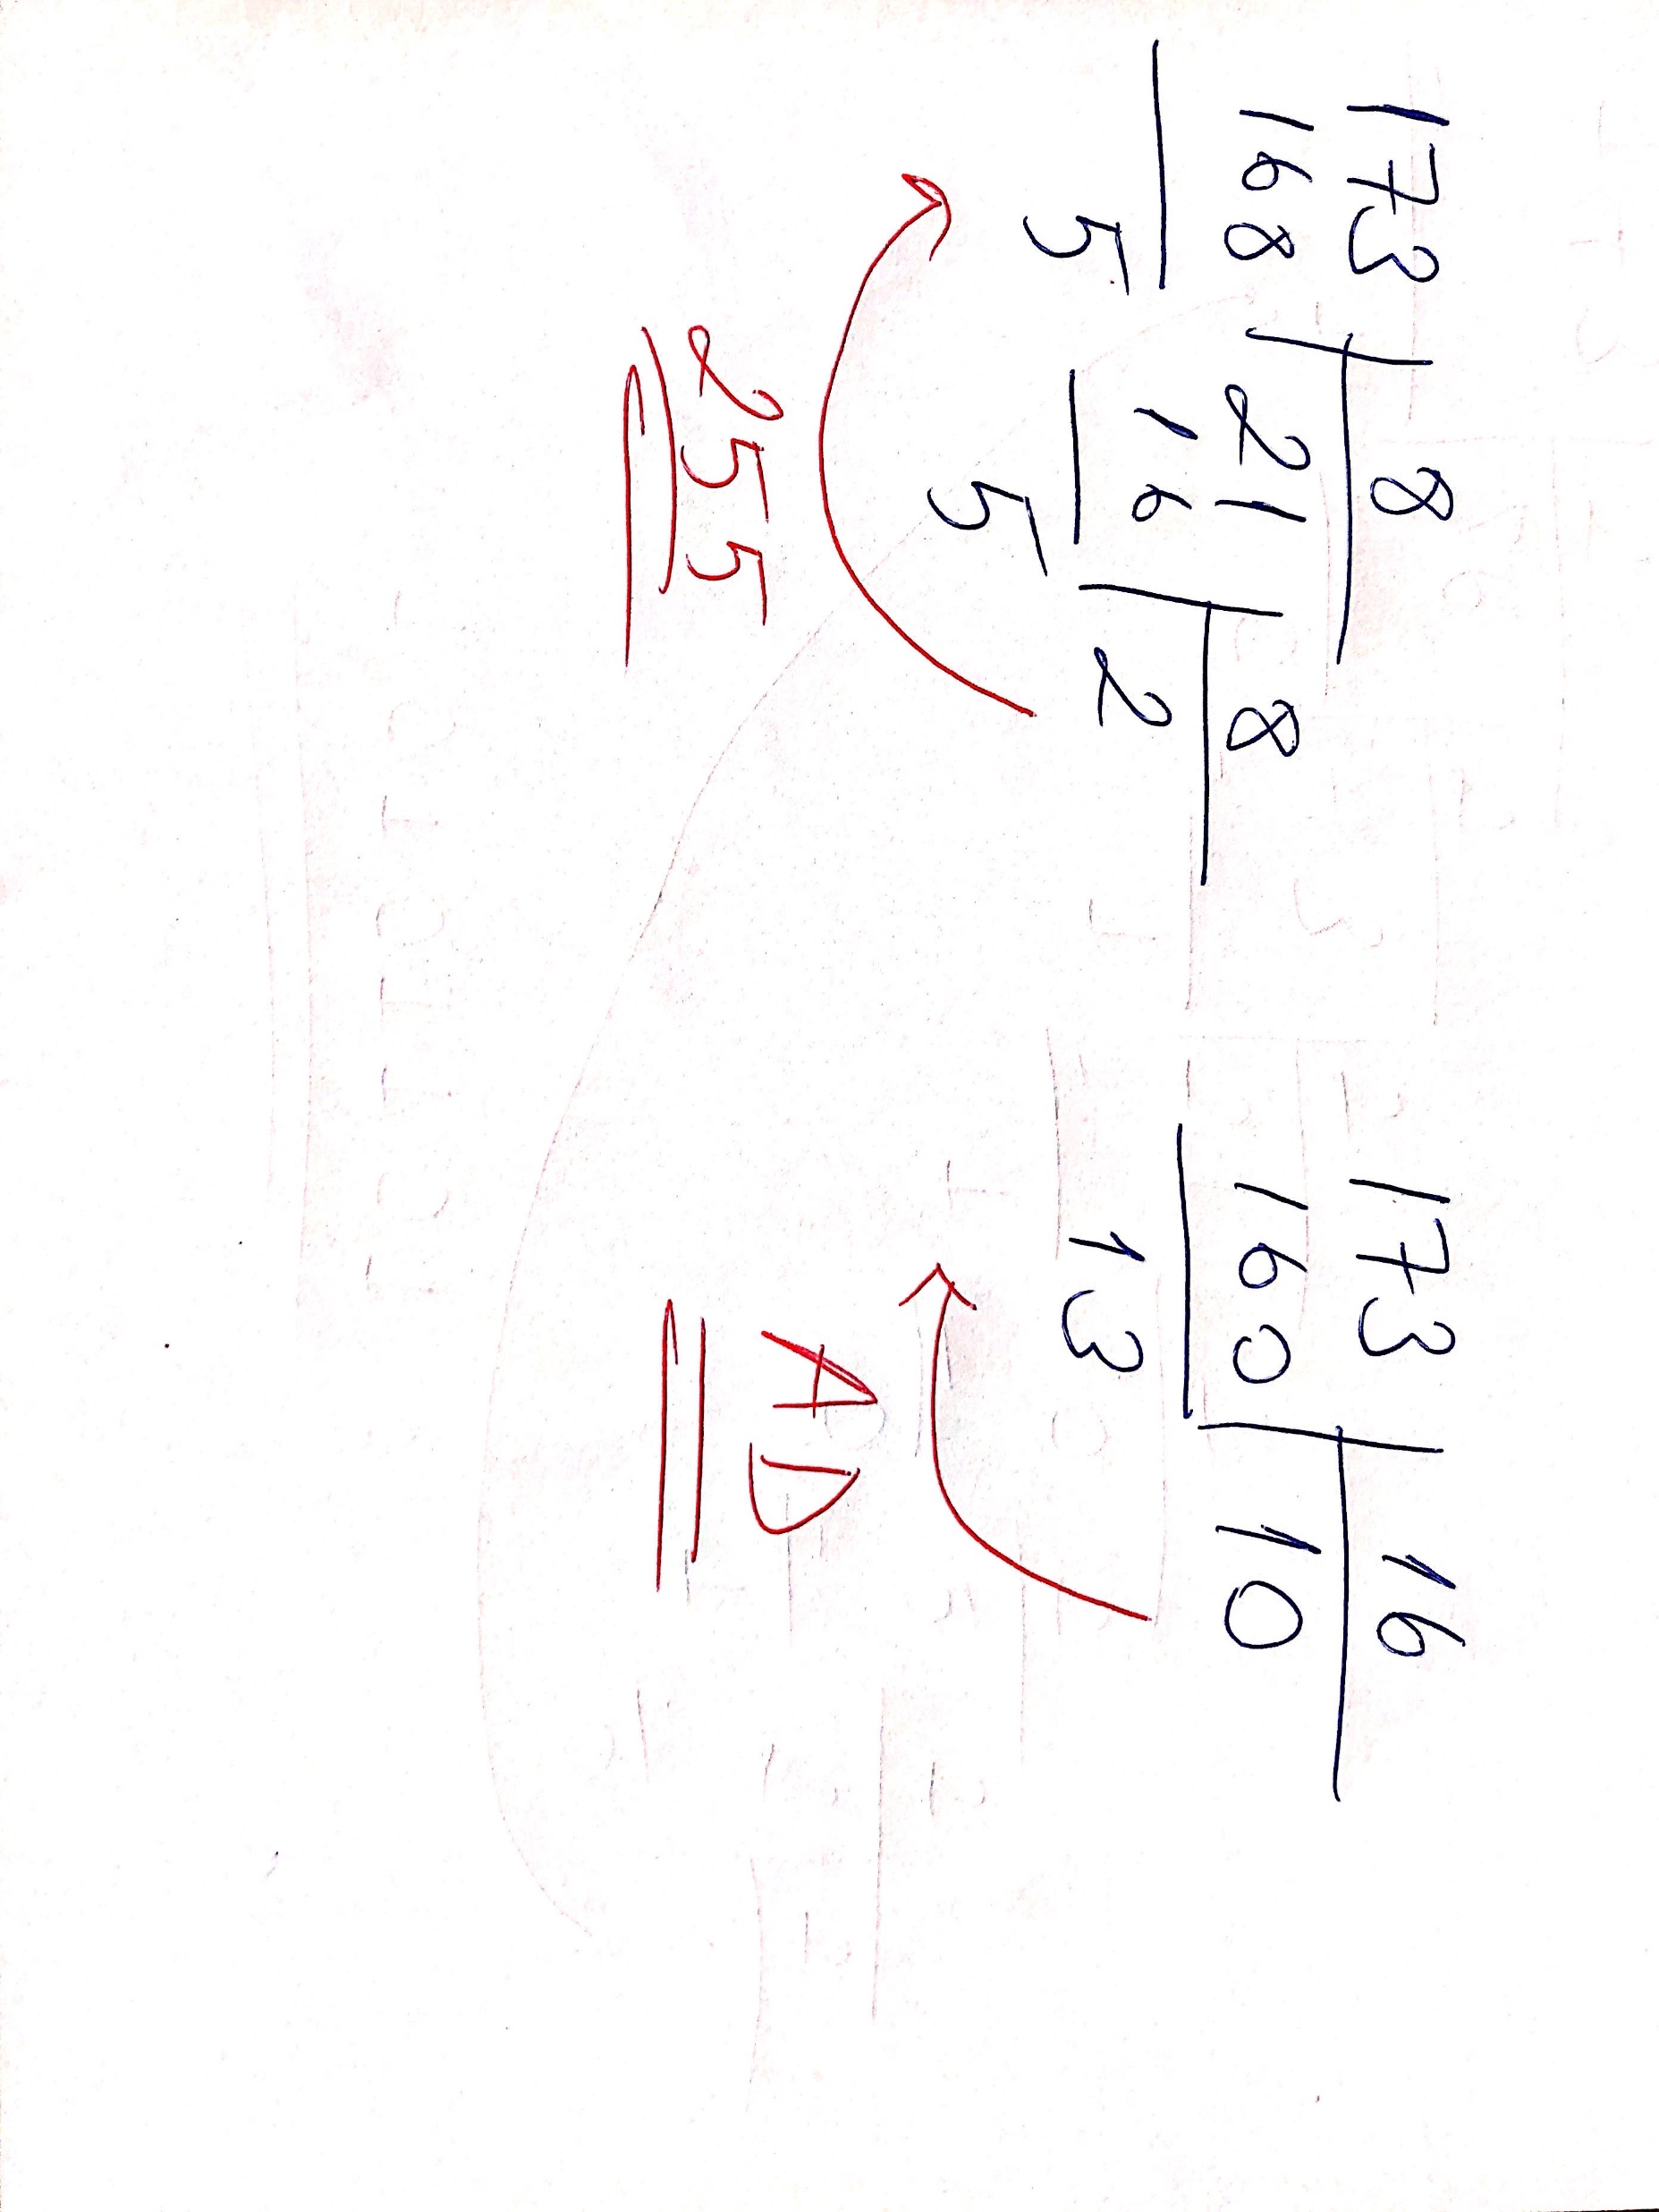 173 8
168 21 8
5 16 2
5
255
173 16
160 10
13
AD